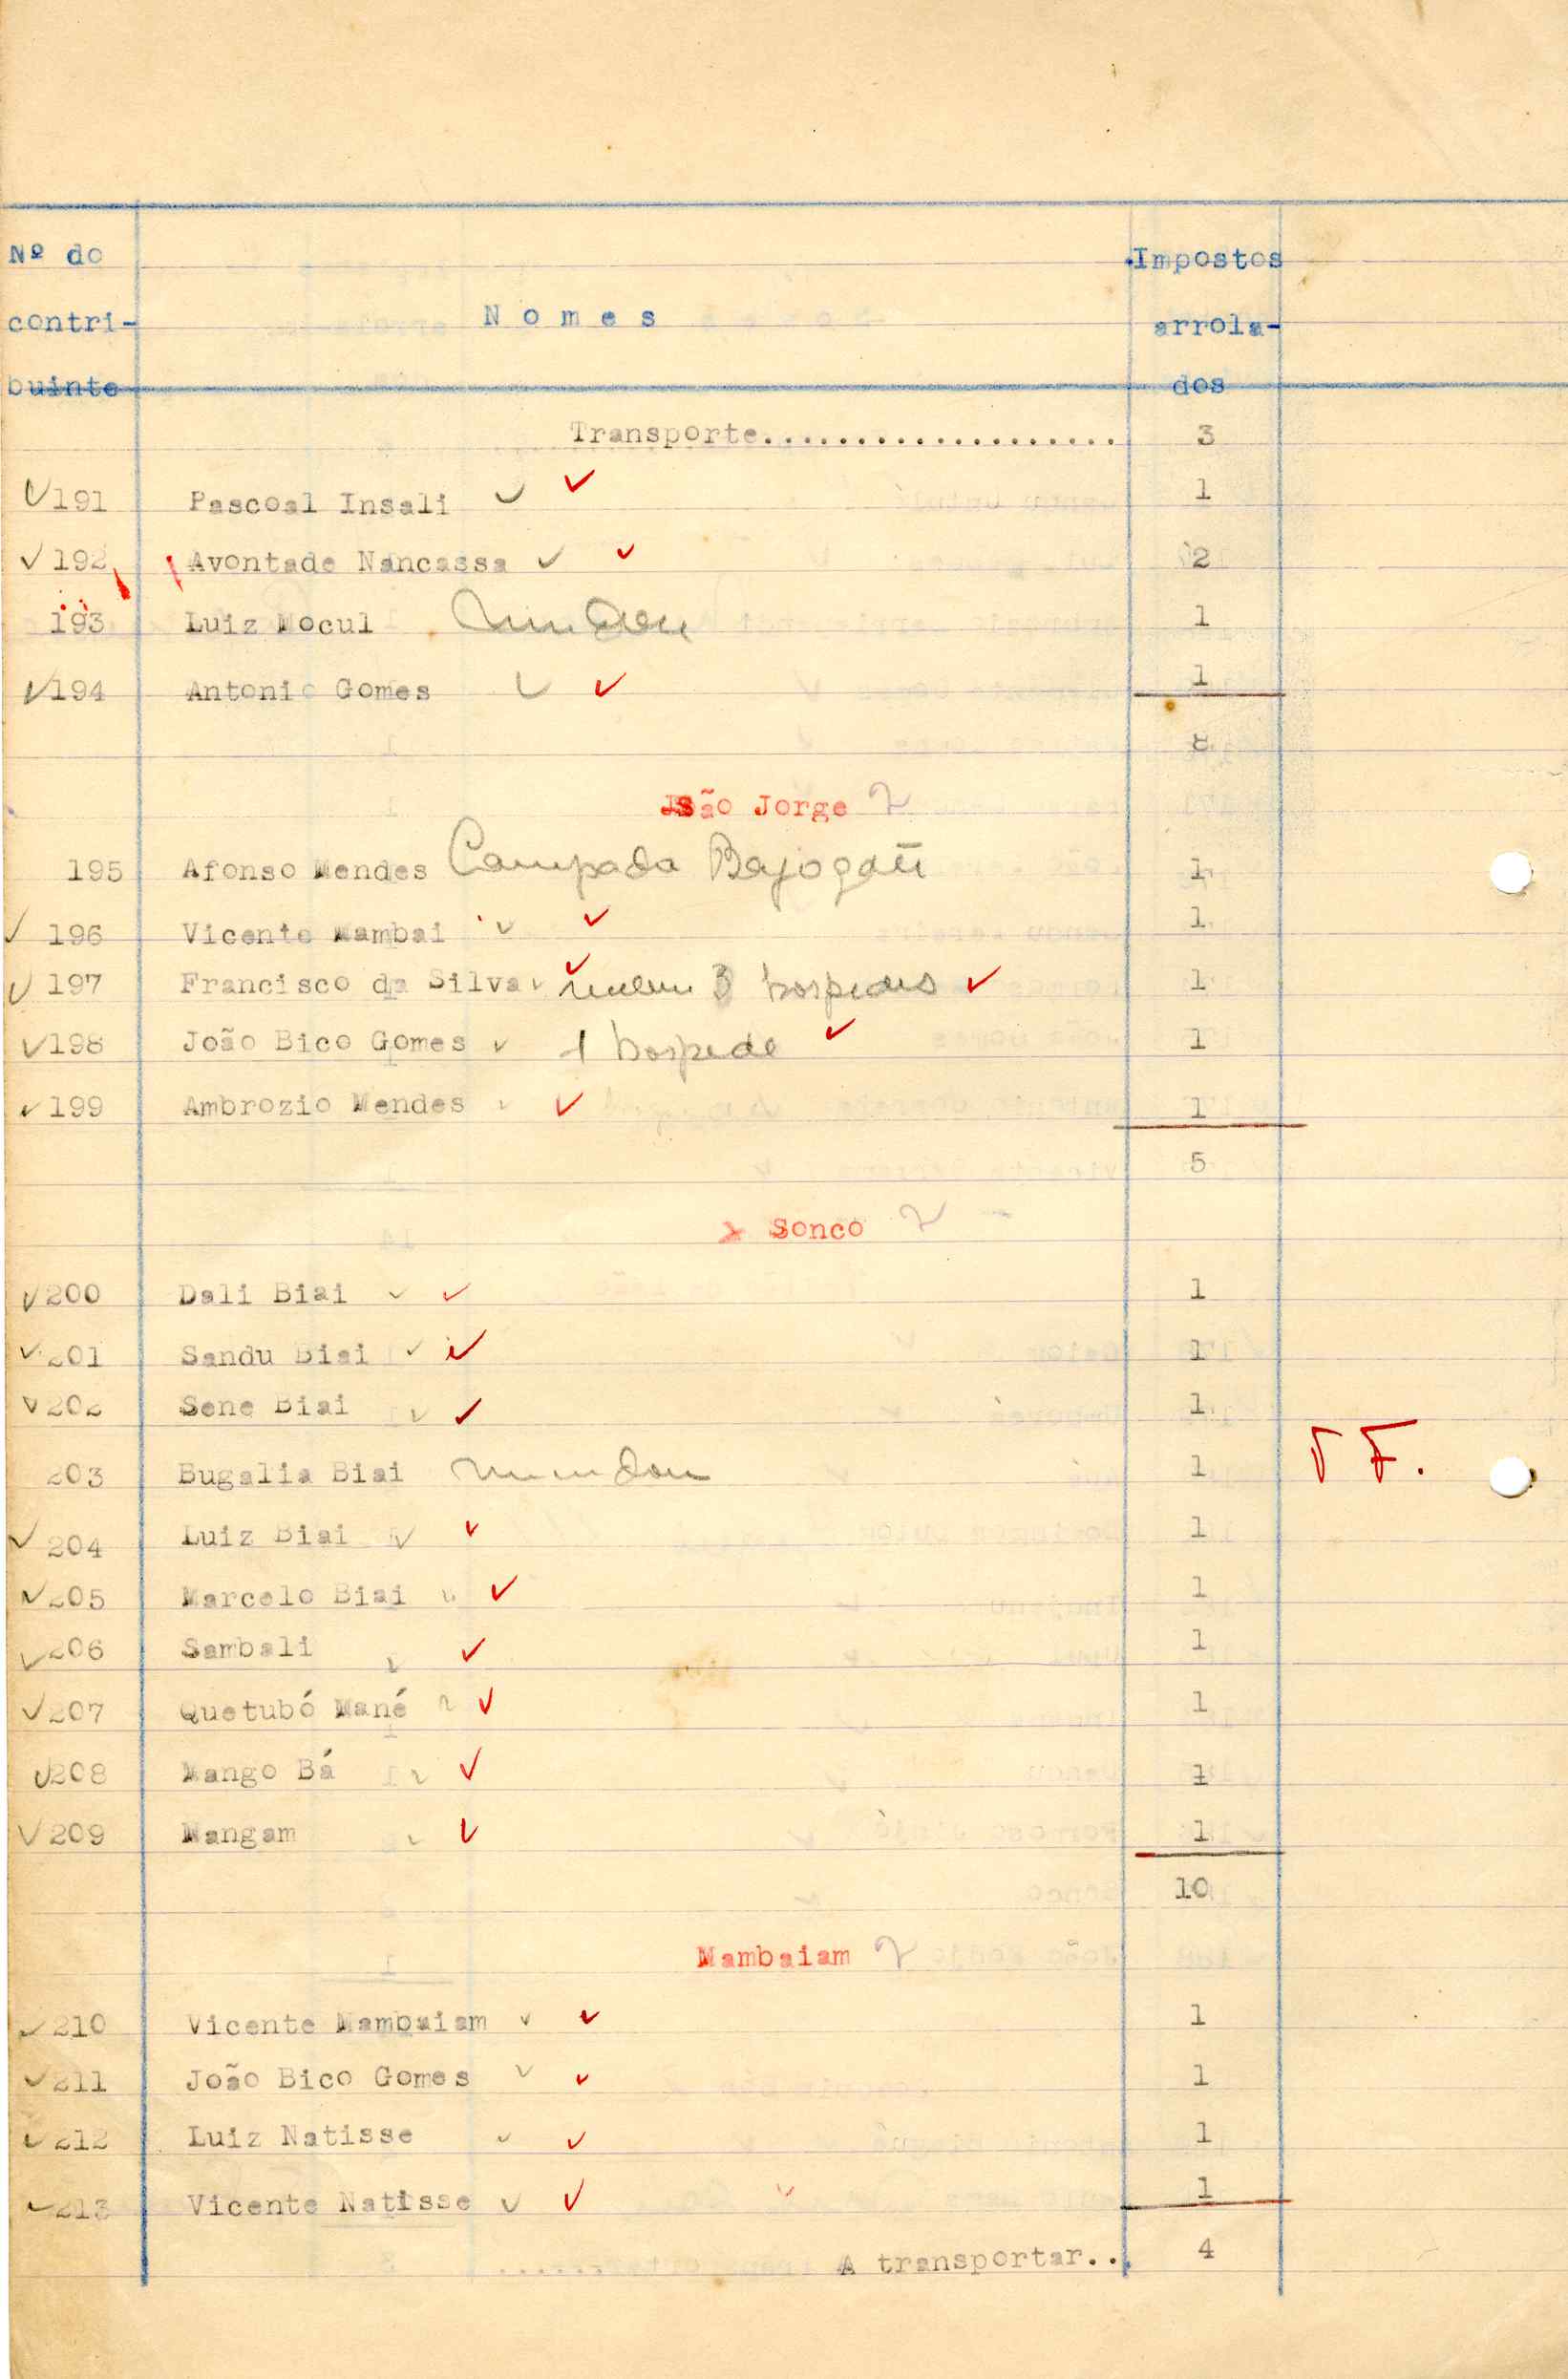 Nº do
contri-
buinte
N o m e s
Impostos
arrola-
dos
Transporte................... 3
191 Pascoal Insali 1
192 Avontade Nancassa 2
193 Luiz Mocul Mudou 1
194 Antonio Gomes 1
8
São Jorge
195 Afonso Mendes 1
196 Vicente Mambai 1
197 Francisco da Silva 3 hospedes 1
198 João Bico Gomes 1 hospede 1
199 Ambrozio Mendes 1
5
Sonco
200 Dali Biai 1
201 Sandu Biai 1
202 Sene Biai 1
203 Bugalia Biai Mudou 1
204 Luiz Biai 1
205 Marcelo Biai 1
206 Sambali 1
207 Quetubó Mané 1
208 Mango Bá 1
209 Mangam 1
10
Mambaiam
210 Vicente Mambaiam 1
211 João Bico Gomes 1
212 Luiz Natisse 1
213 Vicente Natisse 1
A transportar.. 4